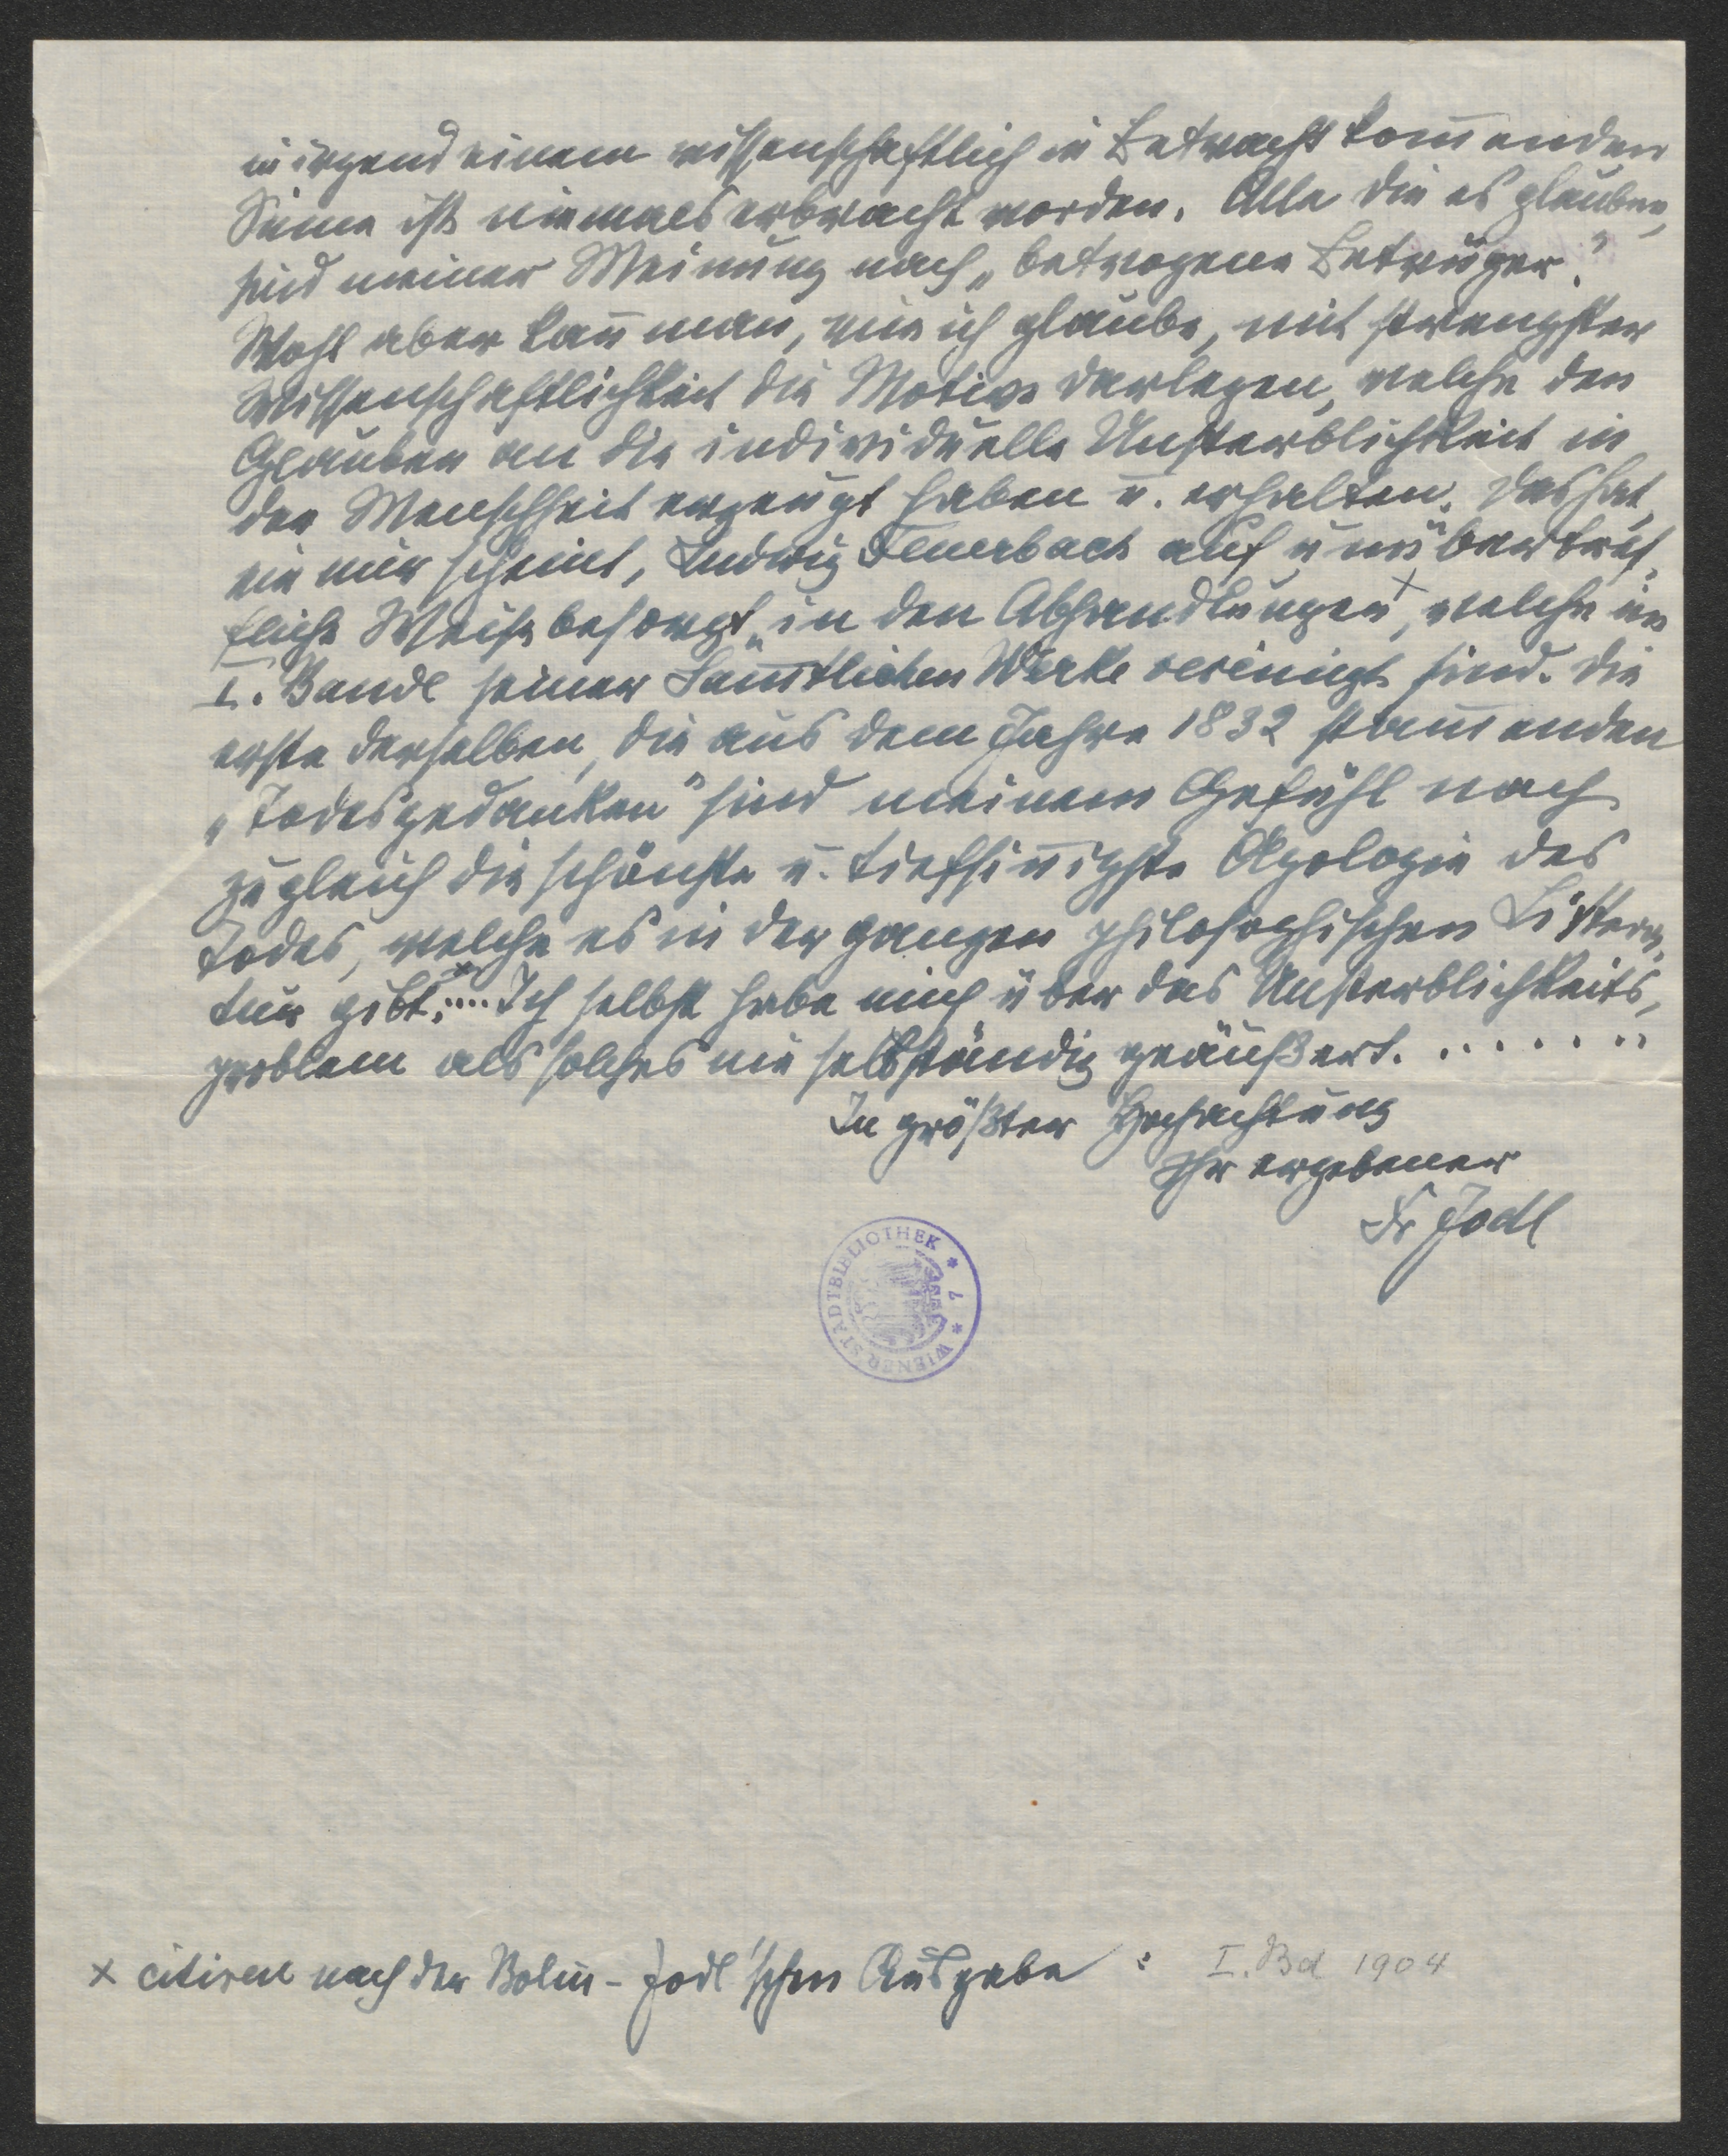 in irgend einem wissenschaftlich in Betracht kom̄enden
Sinne ist niemals erbracht worden. Alle die es glauben,
sind meiner Meinung nach „betrogene Betrüger“.
Wohl aber kan̄ man, wie ich glaube, mit strengster
Wissenschaftlichkeit die Motive darlegen, welche den
Glauben an die individuelle Unsterblichkeit in
der Menschheit erzeugt haben u. erhalten. Das hat,
wie mir scheint, Ludwig Feuerbach auf unübertref-
fliche Weise besorgt, in den Abhandlungen ×, welche im
I. Bande seiner Sam̄tlichen Werke vereinigt sind. Die
erste derselben, die aus dem Jahre 1832 stam̄enden
„Todesgedanken“ sind meinem Gefühl nach
zugleich die schönste u. tiefsin̄igste Apologie des
Todes, welche es in der ganzen philosophischen Littera-
tur gibt. × .... Ich selbst habe mich über das Unsterblichkeits-
problem als solches nie selbständig geäußert. . . . . . . . .
In größter Hochachtung
Ihr ergebener
Fr Jodl
WIENER STADTBIBLIOTHEK * 7 *
× citiren nach der Bolin-Jodl'schen Ausgabe : I. Bd 1904